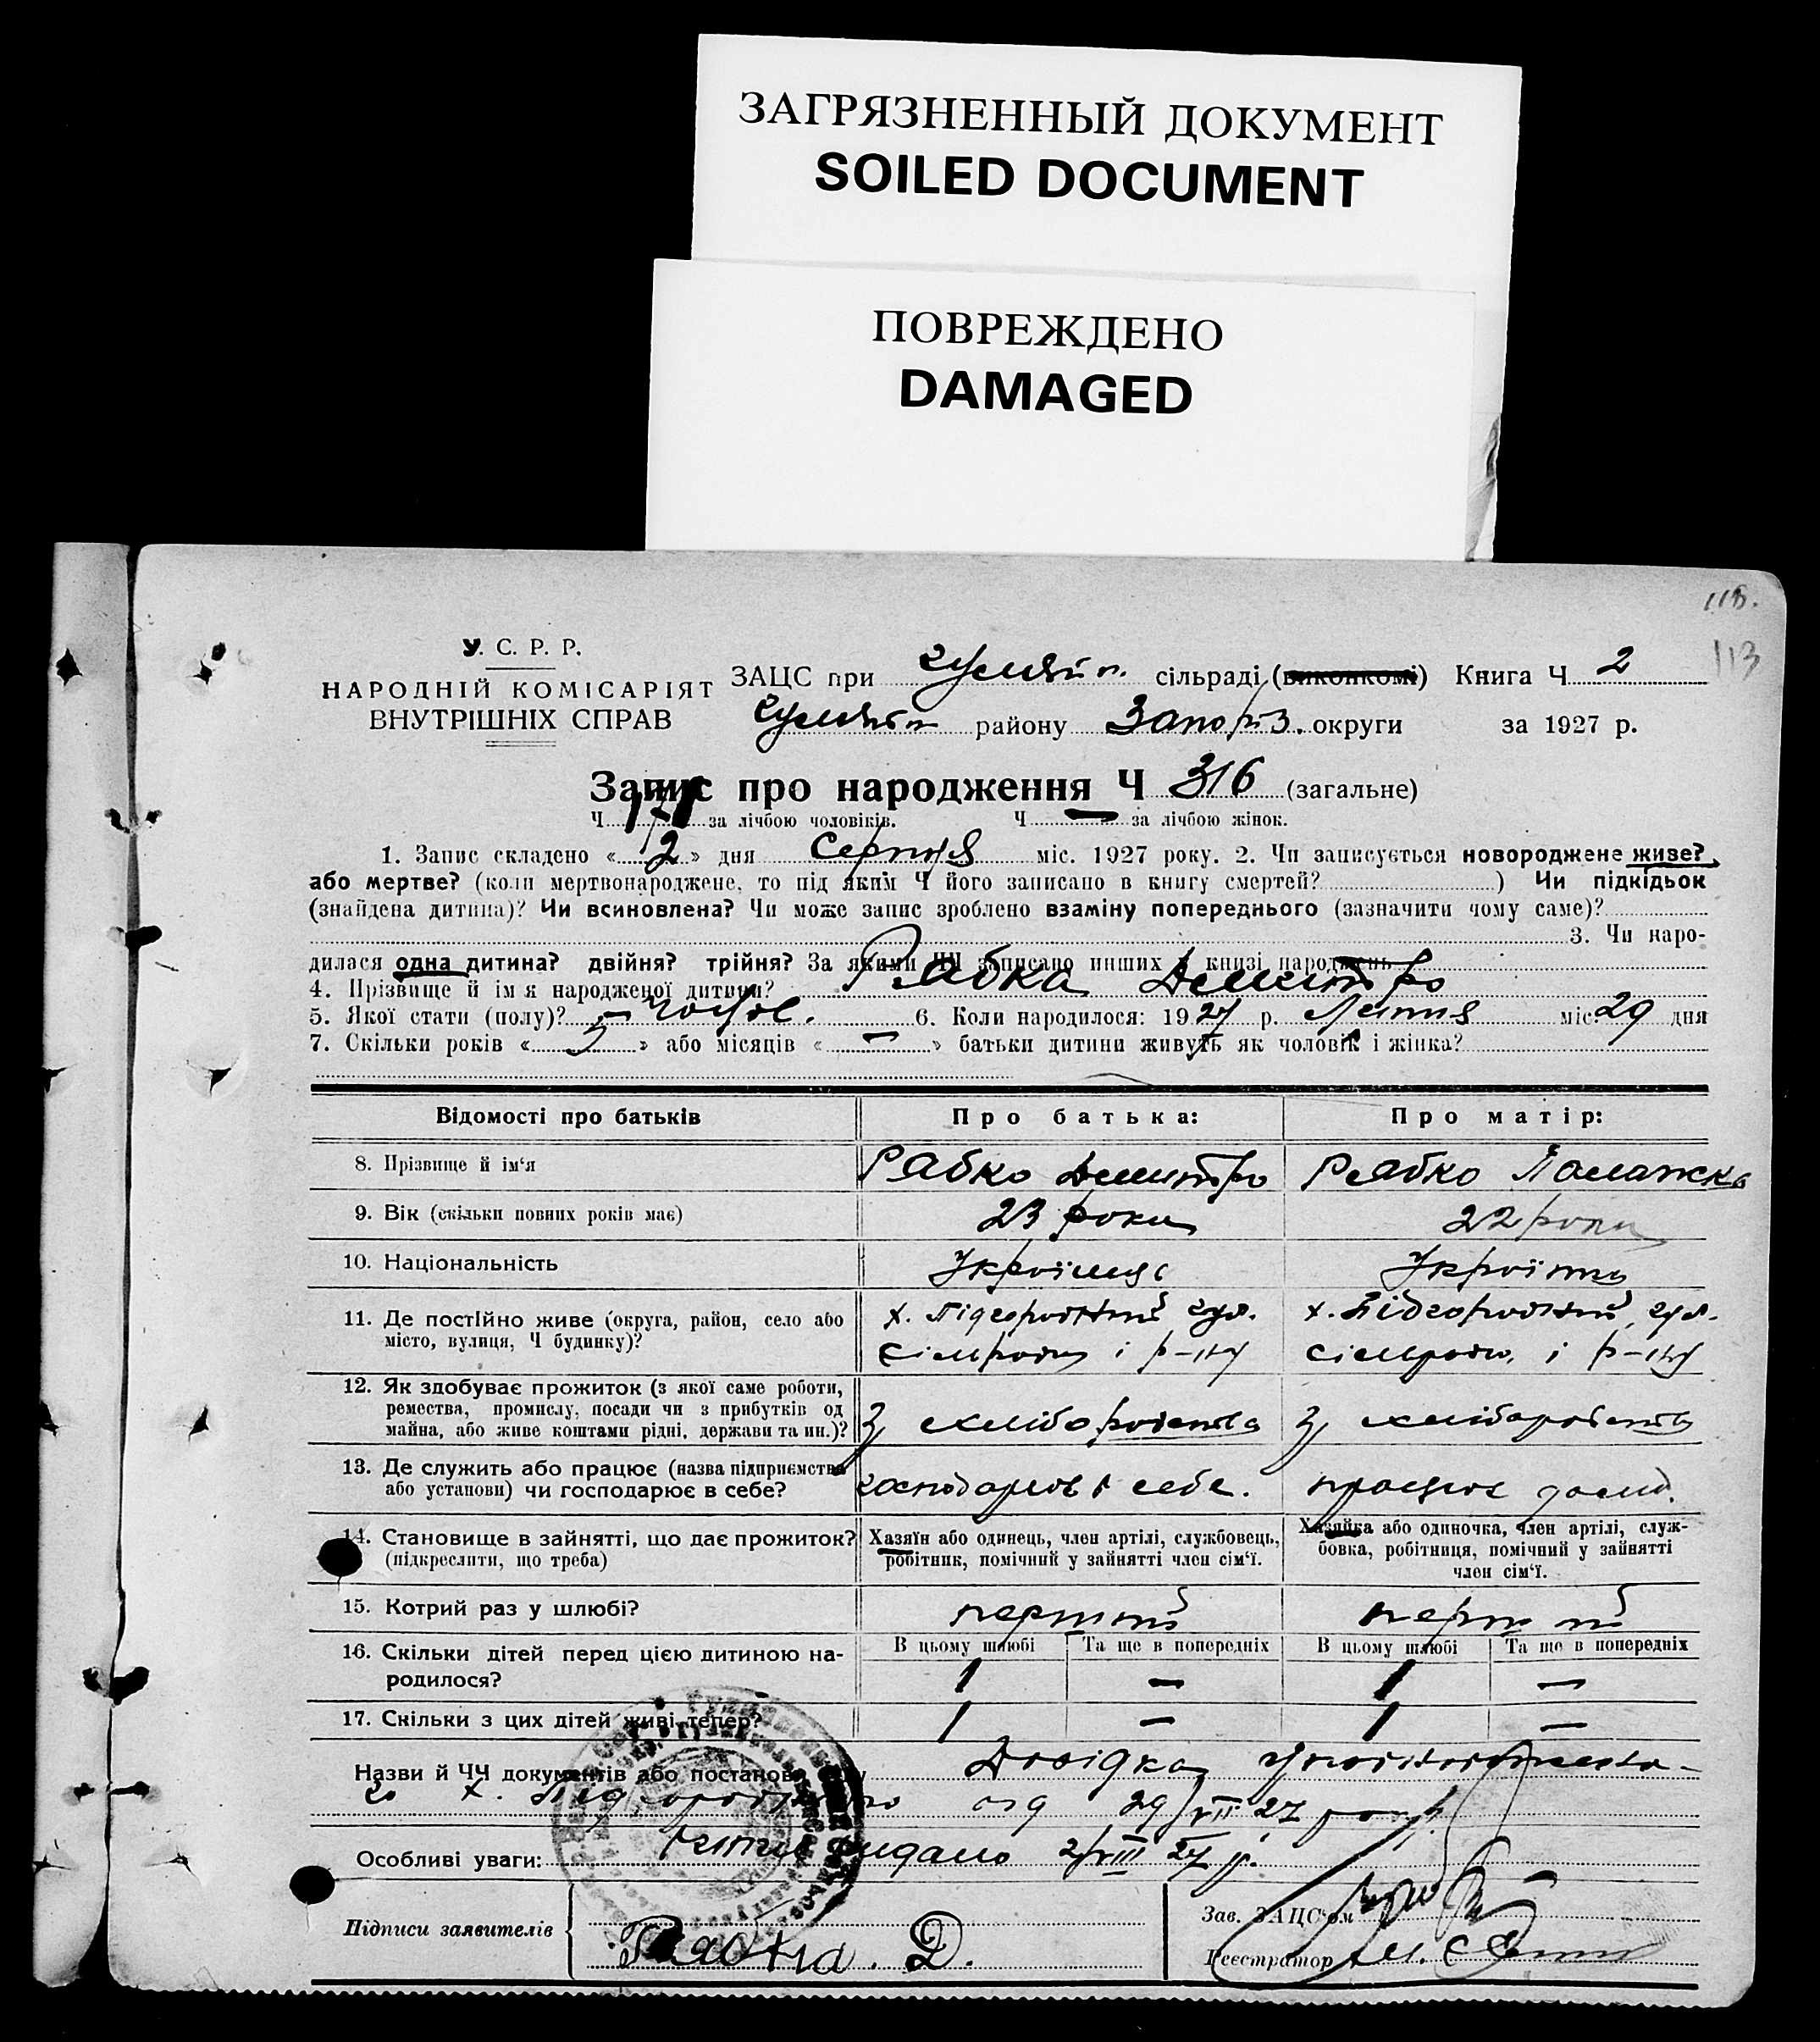 ЗАГРЯЗНЕННЫЙ ДОКУМЕНТ
SOILED DOCUMENT
ПОВРЕЖДЕНО
DAMAGED
118.
113
У. С. Р. Р.
НАРОДНІЙ КОМІСАРІЯТ
ВНУТРІШНІХ СПРАВ
ЗАЦС при Гуляйп. сільраді (виконкомі) Книга Ч 2
Гуляйп району Запоріз. округи за 1927 р.
Запис про народження Ч 316 (загальне)
Ч 171 за лічбою чоловіків. Ч — за лічбою жінок.
1. Запис складено «2» дня Серпня міс. 1927 року. 2. Чи записується новороджене живе?
або мертве? (коли мертвонароджене, то під яким Ч його записано в книгу смертей?) Чи підкідьок
(знайдена дитина)? Чи всиновлена? Чи може запис зроблено взаміну попереднього (зазначити чому саме)?
3. Чи наро-
дилася одна дитина? двійня? трійня? За якими ЧЧ записано инших в книзі народжень
4. Прізвище й ім я народженої дитини? Рябка Демитро
5. Якої стати (полу)? чолов. 6. Коли народилося: 1927 р. Липня міс. 29 дня
7. Скільки років «5» або місяців «—» батьки дитини живуть як чоловік і жінка?
Відомості про батьків Про батька: Про матір:
8. Прізвище й ім'я Рябко Демитро Рябко Паламжка
9. Вік (скільки повних років має) 23 роки 22 роки
10. Національність Українець Українка
11. Де постійно живе (округа, район, село або х. Підгородний гул. х. Підгородний, гул.
місто, вулиця, Ч будинку)? сільради і р-ну сільради, і р-ну
12. Як здобуває прожиток (з якої саме роботи,
ремества, промислу, посади чи з прибутків од З хліборобства З хліборобства
майна, або живе коштами рідні, держави та ин.)?
13. Де служить або працює (назва підприємства
або установи) чи господарює в себе? господарює в себе. працює дома.
14. Становище в зайнятті, що дає прожиток? Хазяїн або одинець, член артілі, службовець, Хазяйка або одиночка, член артілі, служ-
(підкреслити, що треба) робітник, помічний у зайнятті член сім'ї. бовка, робітниця, помічний у зайнятті
член сім'ї.
15. Котрий раз у шлюбі? перший перший
16. Скільки дітей перед цією дитиною на- В цьому шлюбі Та ще в попередніх В цьому шлюбі Та ще в попередніх
родилося? 1 — 1 —
17. Скільки з цих дітей живі тепер? 1 — 1 —
Назви й ЧЧ документів або постанов Довідка Уповноваженно-
го х. Підгородного од 29/VII 27 року
Особливі уваги: видано 2/VIII 27 р.
Підписи заявителів Рябка. Д.
Зав. ЗАЦС'ом
Реєстратор